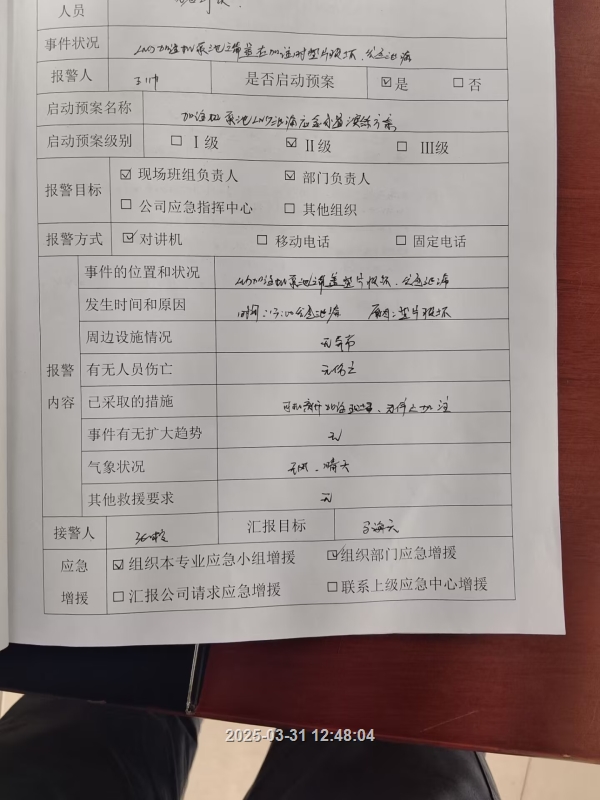 人员
事件状况 LNG加注机泵池上法兰在加注时垫片损坏、
报警人 王帅 是否启动预案 ☑是 ☐否
启动预案名称 加注机泵池LNG泄漏应急处置演练方案
启动预案级别 ☐ Ⅰ级 ☑ Ⅱ级 ☐ Ⅲ级
报警目标 ☑ 现场班组负责人 ☑ 部门负责人
☐ 公司应急指挥中心 ☐ 其他组织
报警方式 ☑ 对讲机 ☐ 移动电话 ☐ 固定电话
报警内容
事件的位置和状况 LNG加注机泵池 垫片损坏、
发生时间和原因 时间:13:00 泄漏 原因:垫片损坏
周边设施情况 无异常
有无人员伤亡 无伤亡
已采取的措施 加注
事件有无扩大趋势 无
气象状况 无风、晴天
其他救援要求 无
接警人 汇报目标
应急增援
☑ 组织本专业应急小组增援 ☑组织部门应急增援
☐ 汇报公司请求应急增援 ☐联系上级应急中心增援
2025-03-31 12:48:04